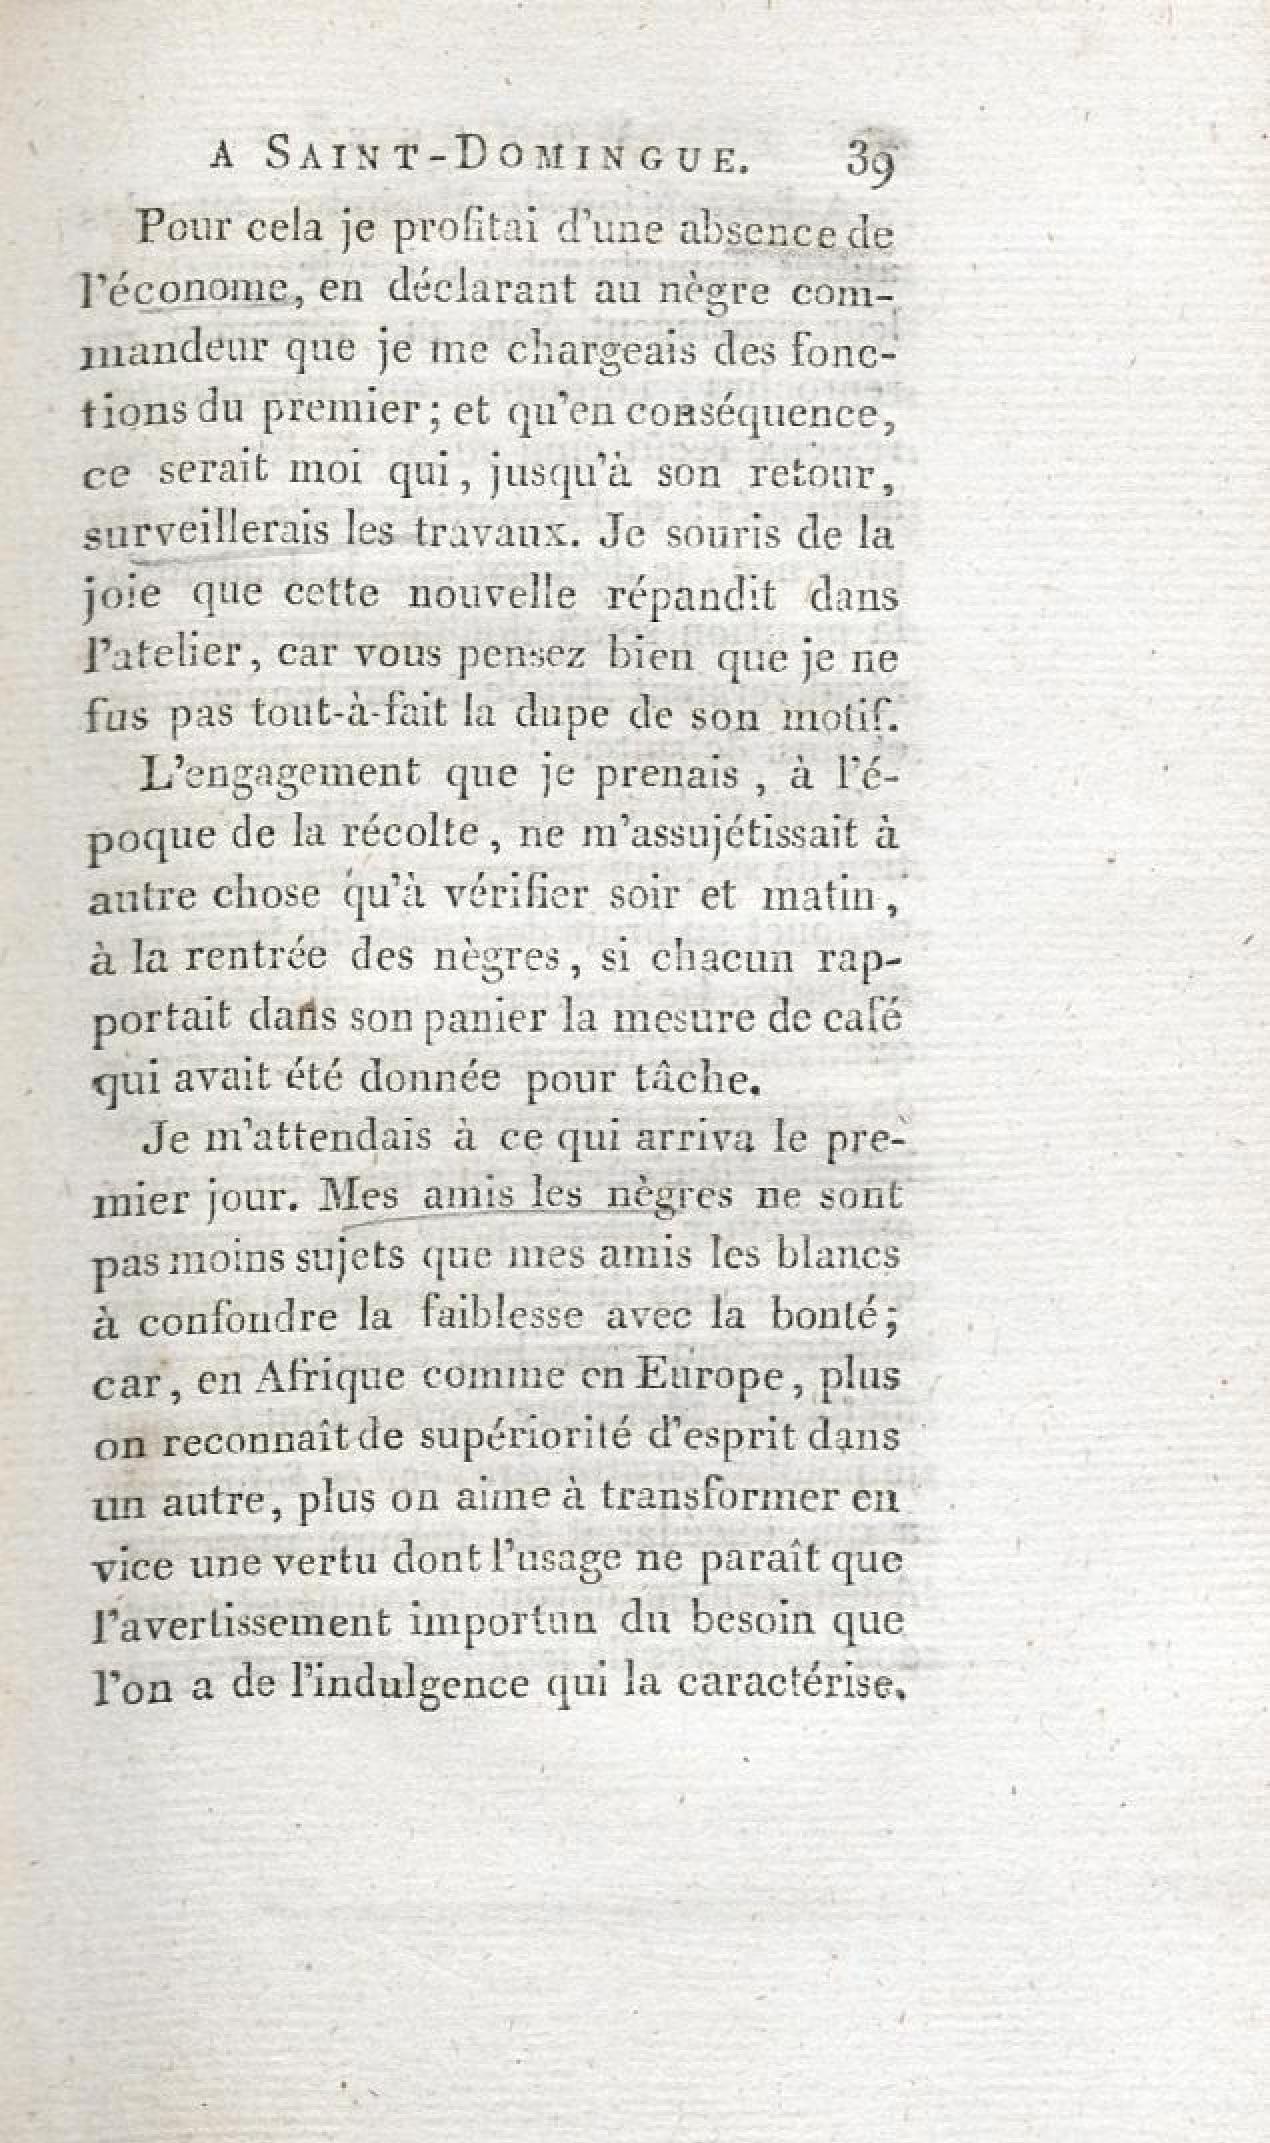 A SAINT-DOMINGUE. 39
Pour cela je profitai d'une absence de
l'économe, en déclarant au nègre com-
mandeur que je me chargeais des fonc-
tions du premier; et qu'en conséquence,
ce serait moi qui, jusqu'à son retour,
surveillerais les travaux. Je souris de la
joie que cette nouvelle répandit dans
l'atelier, car vous pensez bien que je ne
fus pas tout-à-fait la dupe de son motif.
L'engagement que je prenais, à l'é-
poque de la récolte, ne m'assujétissait à
autre chose qu'à vérifier soir et matin,
à la rentrée des nègres, si chacun rap-
portait dans son panier la mesure de café
qui avait été donnée pour tâche.
Je m'attendais à ce qui arriva le pre-
mier jour. Mes amis les nègres ne sont
pas moins sujets que mes amis les blancs
à confondre la faiblesse avec la bonté;
car, en Afrique comme en Europe, plus
on reconnaît de supériorité d'esprit dans
un autre, plus on aime à transformer en
vice une vertu dont l'usage ne paraît que
l'avertissement importun du besoin que
l'on a de l'indulgence qui la caractérise.